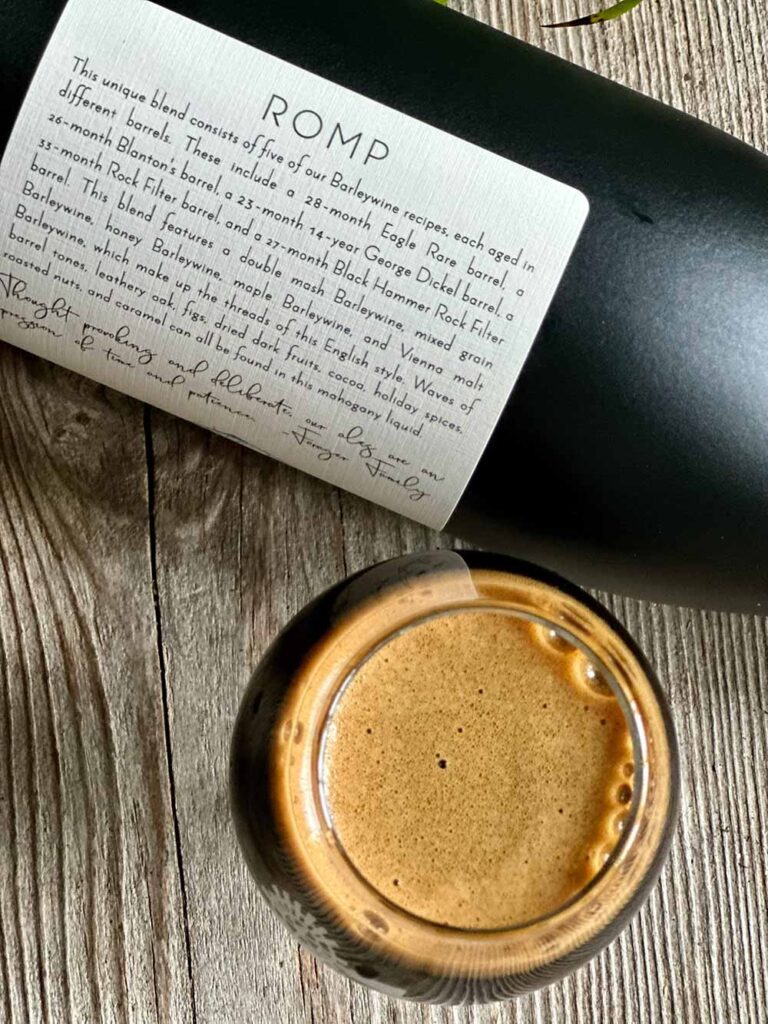 ROMP
This unique blend consists of five of our Barleywine recipes, each aged in
different barrels. These include a 28-month Eagle Rare barrel, a
26-month Blanton's barrel, a 23-month 14-year George Dickel barrel, a
33-month Rock Filter barrel, and a 27-month Black Hammer Rock Filter
barrel. This blend features a double mash Barleywine, mixed grain
Barleywine, honey Barleywine, maple Barleywine, and Vienna malt
Barleywine, which make up the threads of this English style. Waves of
barrel tones, leathery oak, figs, dried dark fruits, cocoa, holiday spices,
roasted nuts, and caramel can all be found in this mahogany liquid.
Thought provoking and deliberate, our ales are an
pression of time and patience. -Forager Family